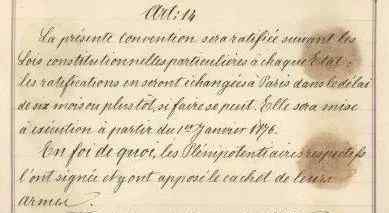 Art: 14
La présente Convention sera ratifiée suivant les
Lois constitutionnelles particulières à chaque Etat;
les ratifications en seront échangées à Paris dans le délai
de six mois ou plus tôt, si faire se peut. Elle sera mise
à exécution à partir du 1er Janvier 1876.
En foi de quoi, les Plénipotentiaires respectifs
l'ont signée et y ont apposé le cachet de leurs
armes.